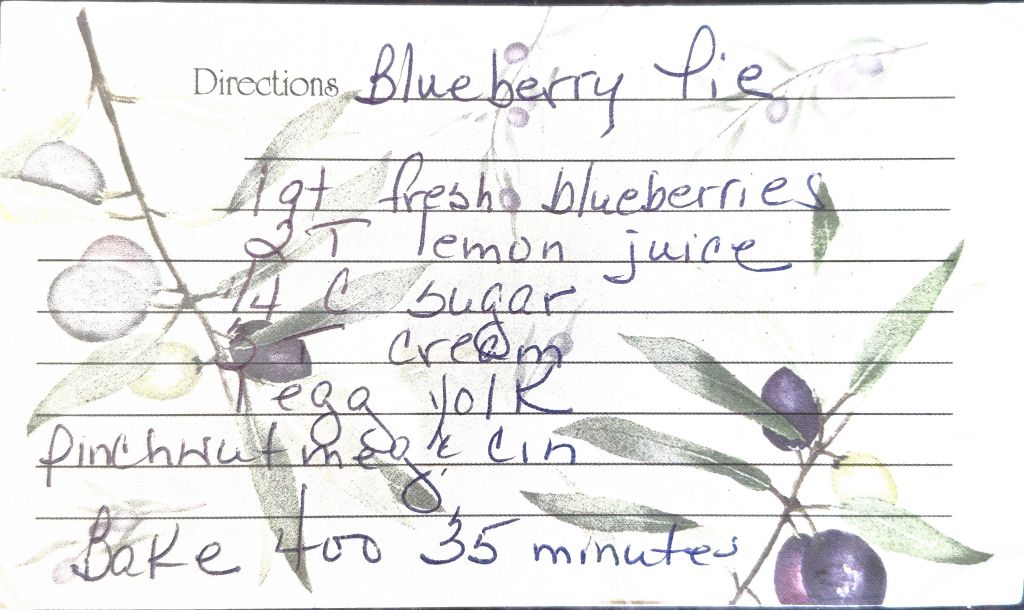 Directions Blueberry Pie
1 qt fresh blueberries
2 T lemon juice
1/4 C sugar
3 T cream
1 egg yolk
pinch nutmeg & cin
Bake 400 35 minutes